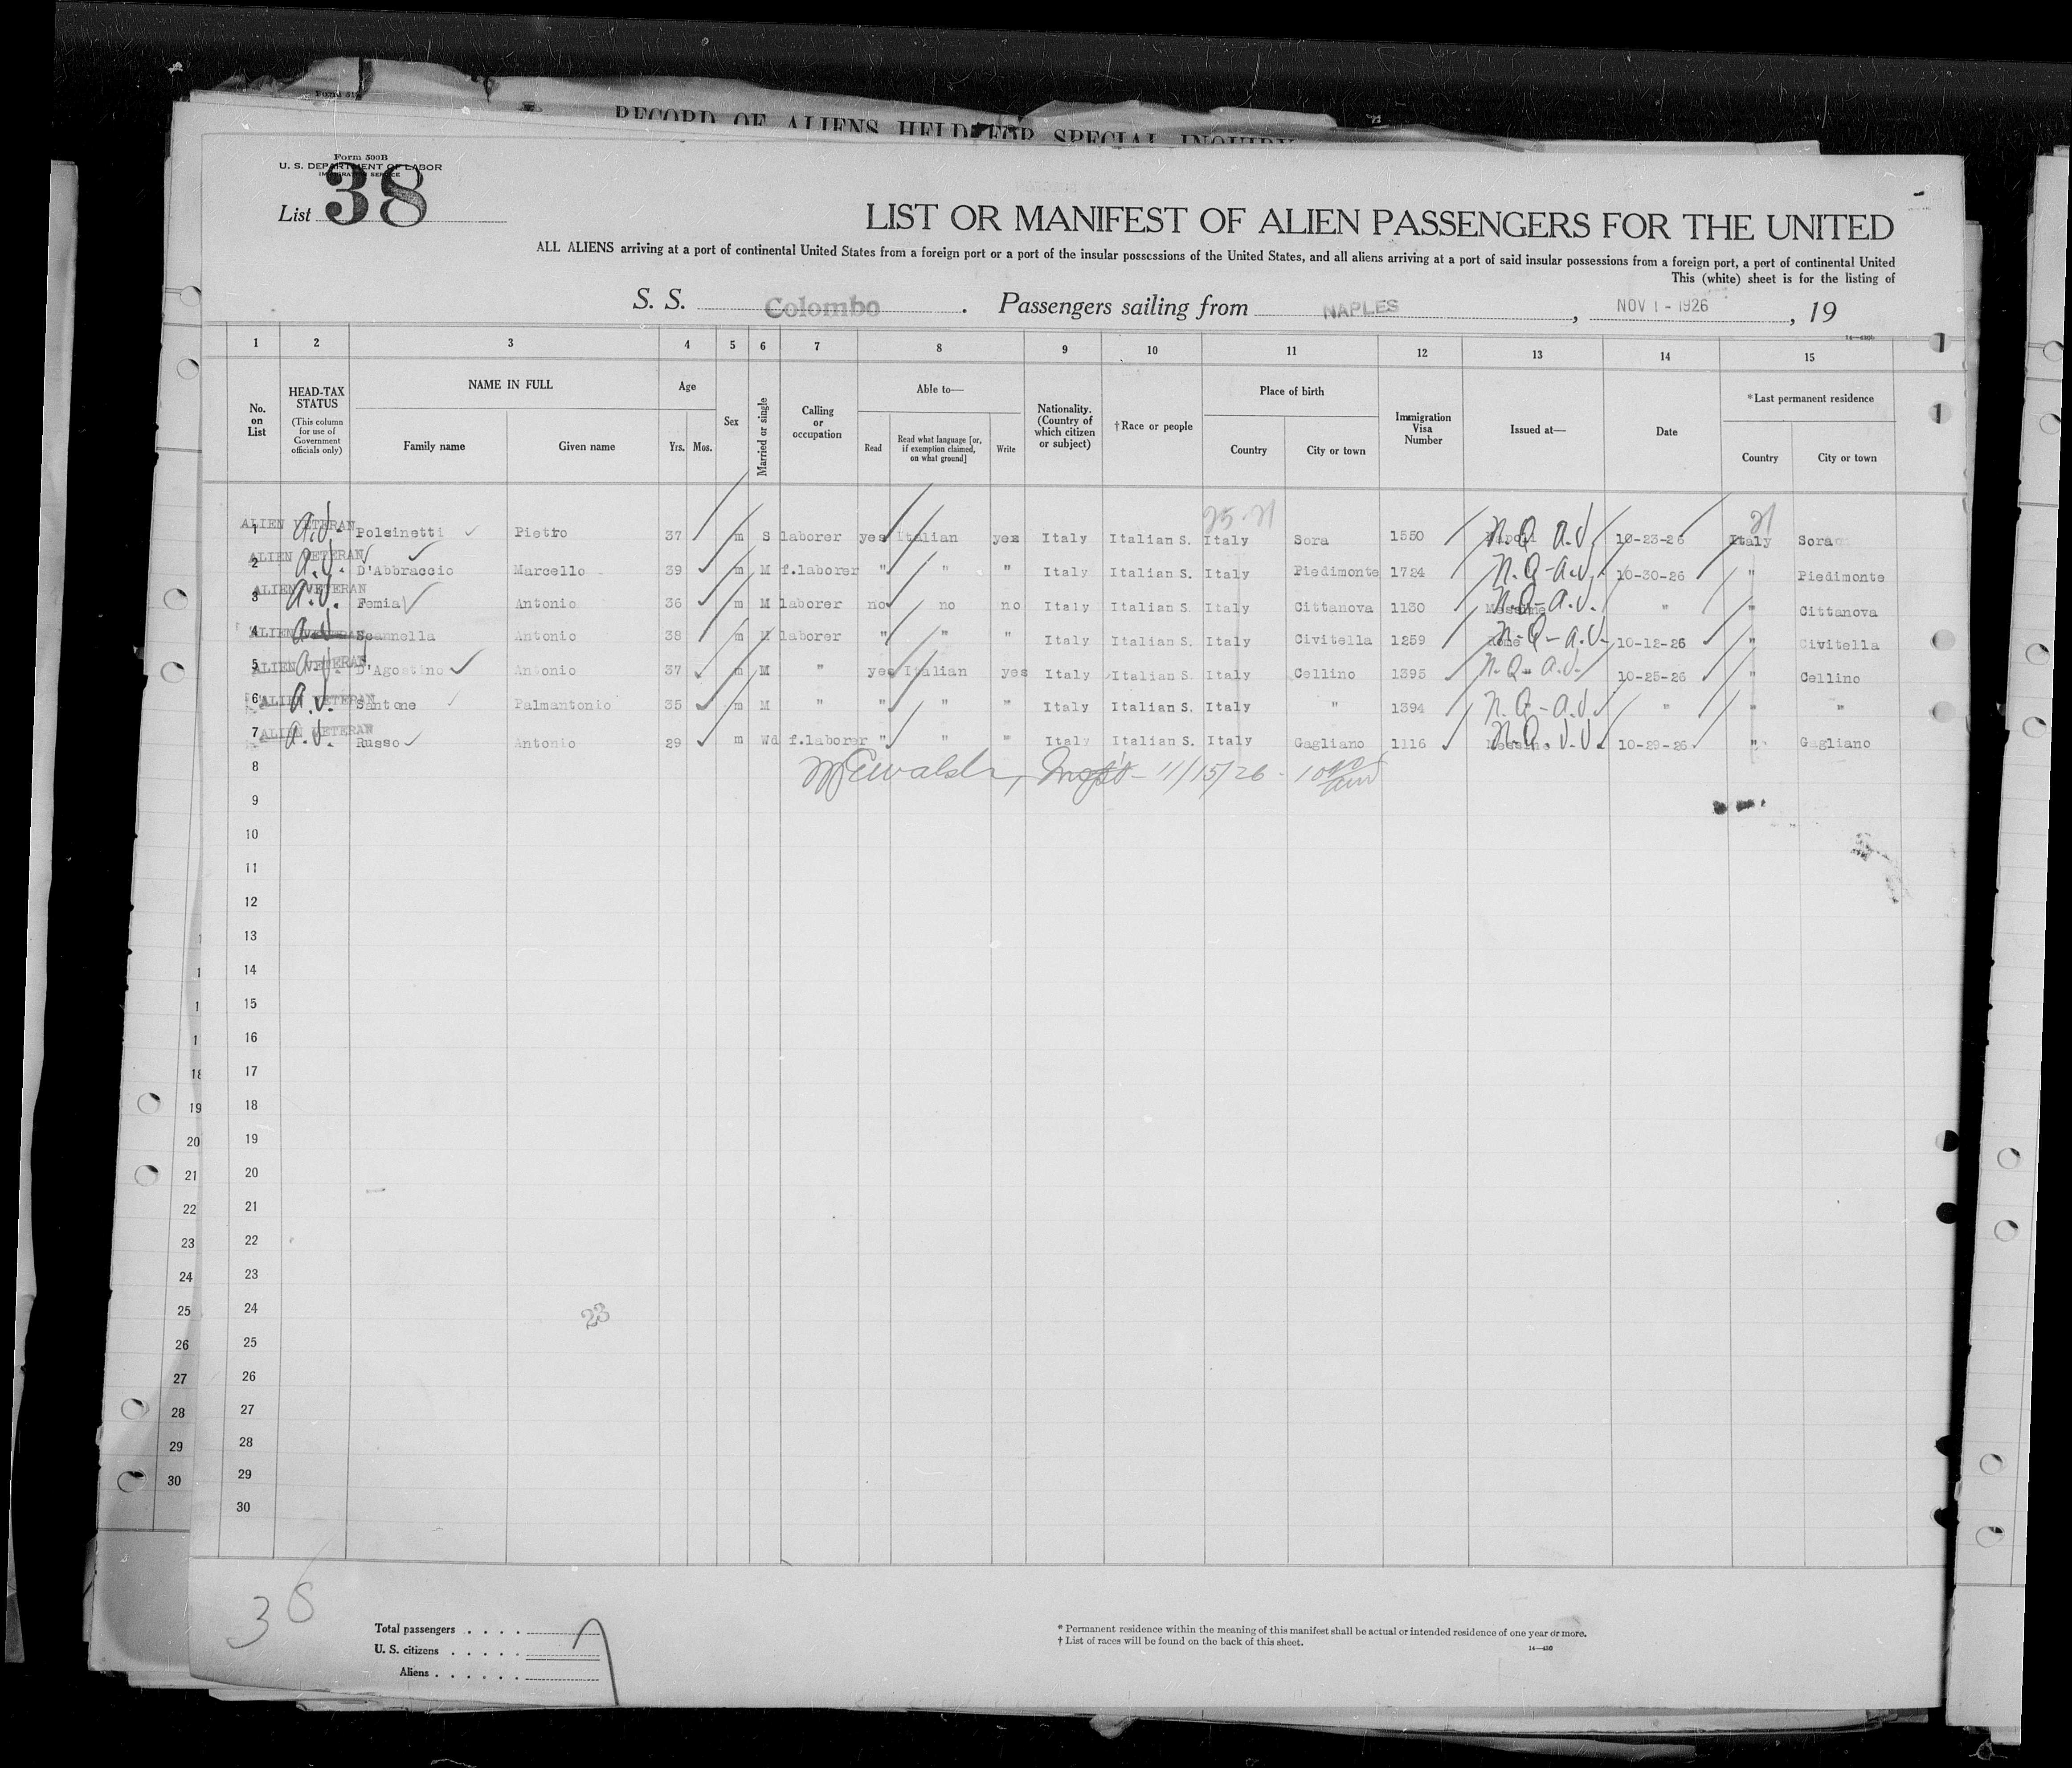 Form 51
RECORD OF ALIENS HELD FOR SPECIAL INQUIRY
Form 500B
U. S. DEPARTMENT OF LABOR
IMMIGRATION SERVICE
List 38
LIST OR MANIFEST OF ALIEN PASSENGERS FOR THE UNITED
ALL ALIENS arriving at a port of continental United States from a foreign port or a port of the insular possessions of the United States, and all aliens arriving at a port of said insular possessions from a foreign port, a port of continental United
This (white) sheet is for the listing of
S. S. Colombo. Passengers sailing from NAPLES, NOV 1 - 1926, 19
1 2 3 4 5 6 7 8 9 10 11 12 13 14 15
No. on List
HEAD-TAX STATUS
(This column for use of Government officials only)
NAME IN FULL
Family name Given name
Age
Yrs. Mos.
Sex
Married or single
Calling or occupation
Able to—
Read Read what language [or, if exemption claimed, on what ground] Write
Nationality. (Country of which citizen or subject)
†Race or people
Place of birth
Country City or town
Immigration Visa Number
Issued at—
Date
*Last permanent residence
Country City or town
25-21 21
1 ALIEN VETERAN a.v. Polsinetti Pietro 37 m S laborer yes Italian yes Italy Italian S. Italy Sora 1550 n.Q a.v. 10-23-26 Italy Sora
2 ALIEN VETERAN a.v. D'Abbraccio Marcello 39 m M f.laborer " " " Italy Italian S. Italy Piedimonte 1724 n.Q-a.v. 10-30-26 " Piedimonte
3 ALIEN VETERAN a.v. Femia Antonio 36 m M laborer no no no Italy Italian S. Italy Cittanova 1130 Messina n.Q-a.v. " " Cittanova
4 ALIEN VETERAN a.v. Scannella Antonio 38 m M laborer " " " Italy Italian S. Italy Civitella 1259 Rome n-Q-a.v. 10-12-26 " Civitella
5 ALIEN VETERAN a.v. D'Agostino Antonio 37 m M " yes Italian yes Italy Italian S. Italy Cellino 1395 n.Q-a.v. 10-25-26 " Cellino
6 ALIEN VETERAN a.v. Santone Palmantonio 35 m M " " " " Italy Italian S. Italy " 1394 n.Q-a.v. " " "
7 ALIEN VETERAN a.v. Russo Antonio 29 m Wd f.laborer " " " Italy Italian S. Italy Gagliano 1116 Messina n.Q.v.v. 10-29-26 " Gagliano
8 11/15/26 - 10 00 am
9
10
11
12
13
14
15
16
17
18
19
20
21
22
23
24
25
26
27
28
29
30
18
19
20
21
22
23
24
25
26
27
28
29
30
23
38
Total passengers . . . . 7
U. S. citizens . . . . .
Aliens . . . . . .
* Permanent residence within the meaning of this manifest shall be actual or intended residence of one year or more.
† List of races will be found on the back of this sheet.
14—430